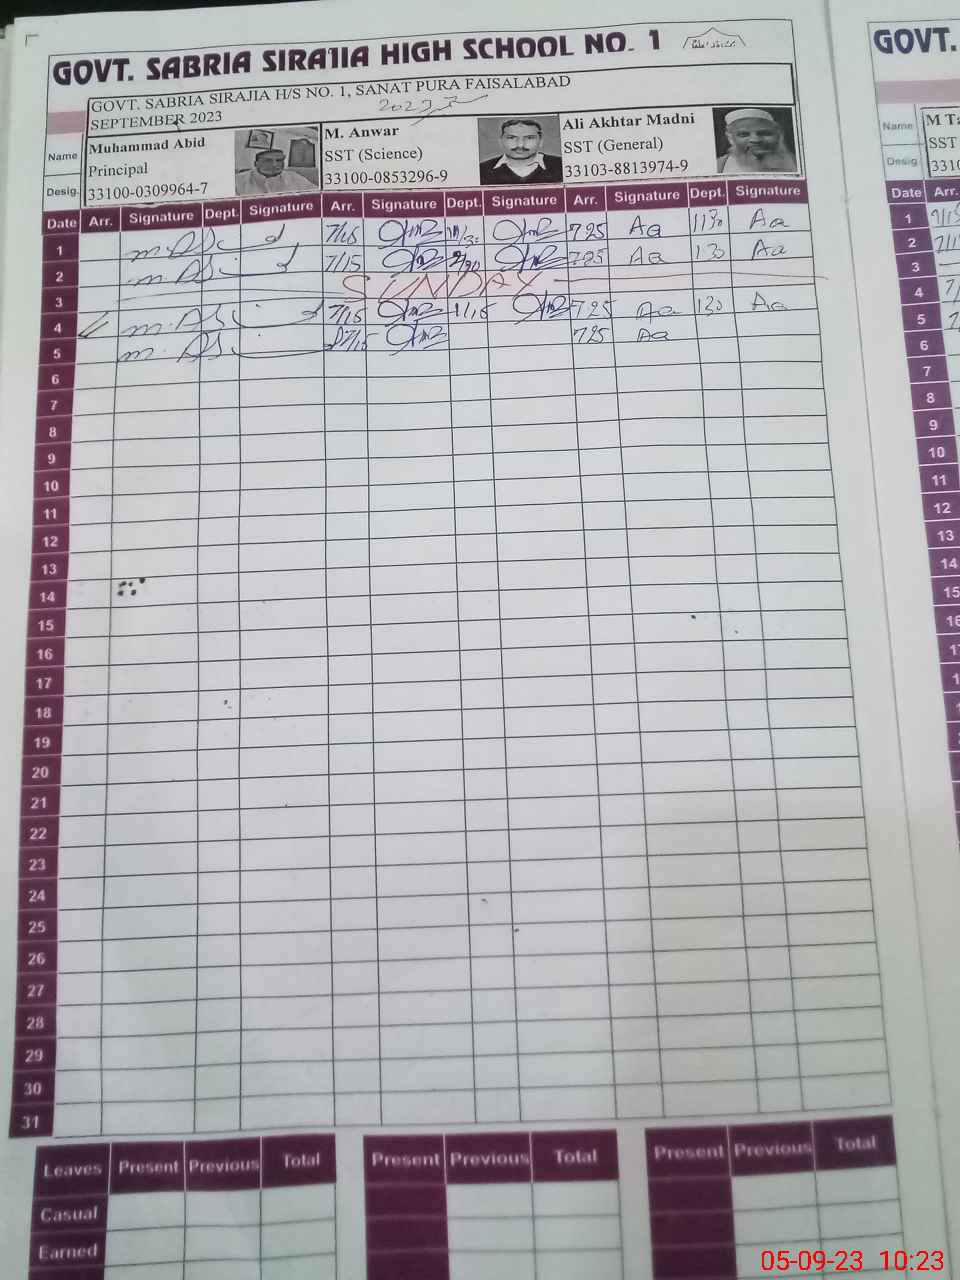 GOVT. SABRIA SIRAJIA HIGH SCHOOL NO. 1
GOVT.
GOVT. SABRIA SIRAJIA H/S NO. 1, SANAT PURA FAISALABAD
SEPTEMBER 2023
2023
Name Muhammad Abid M. Anwar Ali Akhtar Madni Name
Principal SST (Science) SST (General) SST
Desig. 33100-0309964-7 33100-0853296-9 33103-8813974-9 Desig
Date Arr. Signature Dept. Signature Arr. Signature Dept. Signature Arr. Signature Dept. Signature Date Arr.
1 7/15 725 Aa 1130 Aa 1
2 7/15 725 Aa 130 Aa 2
3 SUNDAY 3
4 7/15 11/15 725 Aa 130 Aa 4
5 7/15 725 Aa 5
6 6
7 7
8 8
9 9
10 10
11 11
12 12
13 13
14 14
15 15
16 16
17
18
19
20
21
22
23
24
25
26
27
28
29
30
31
Leaves Present Previous Total Present Previous Total Present Previous Total
Casual
Earned
05-09-23 10:23